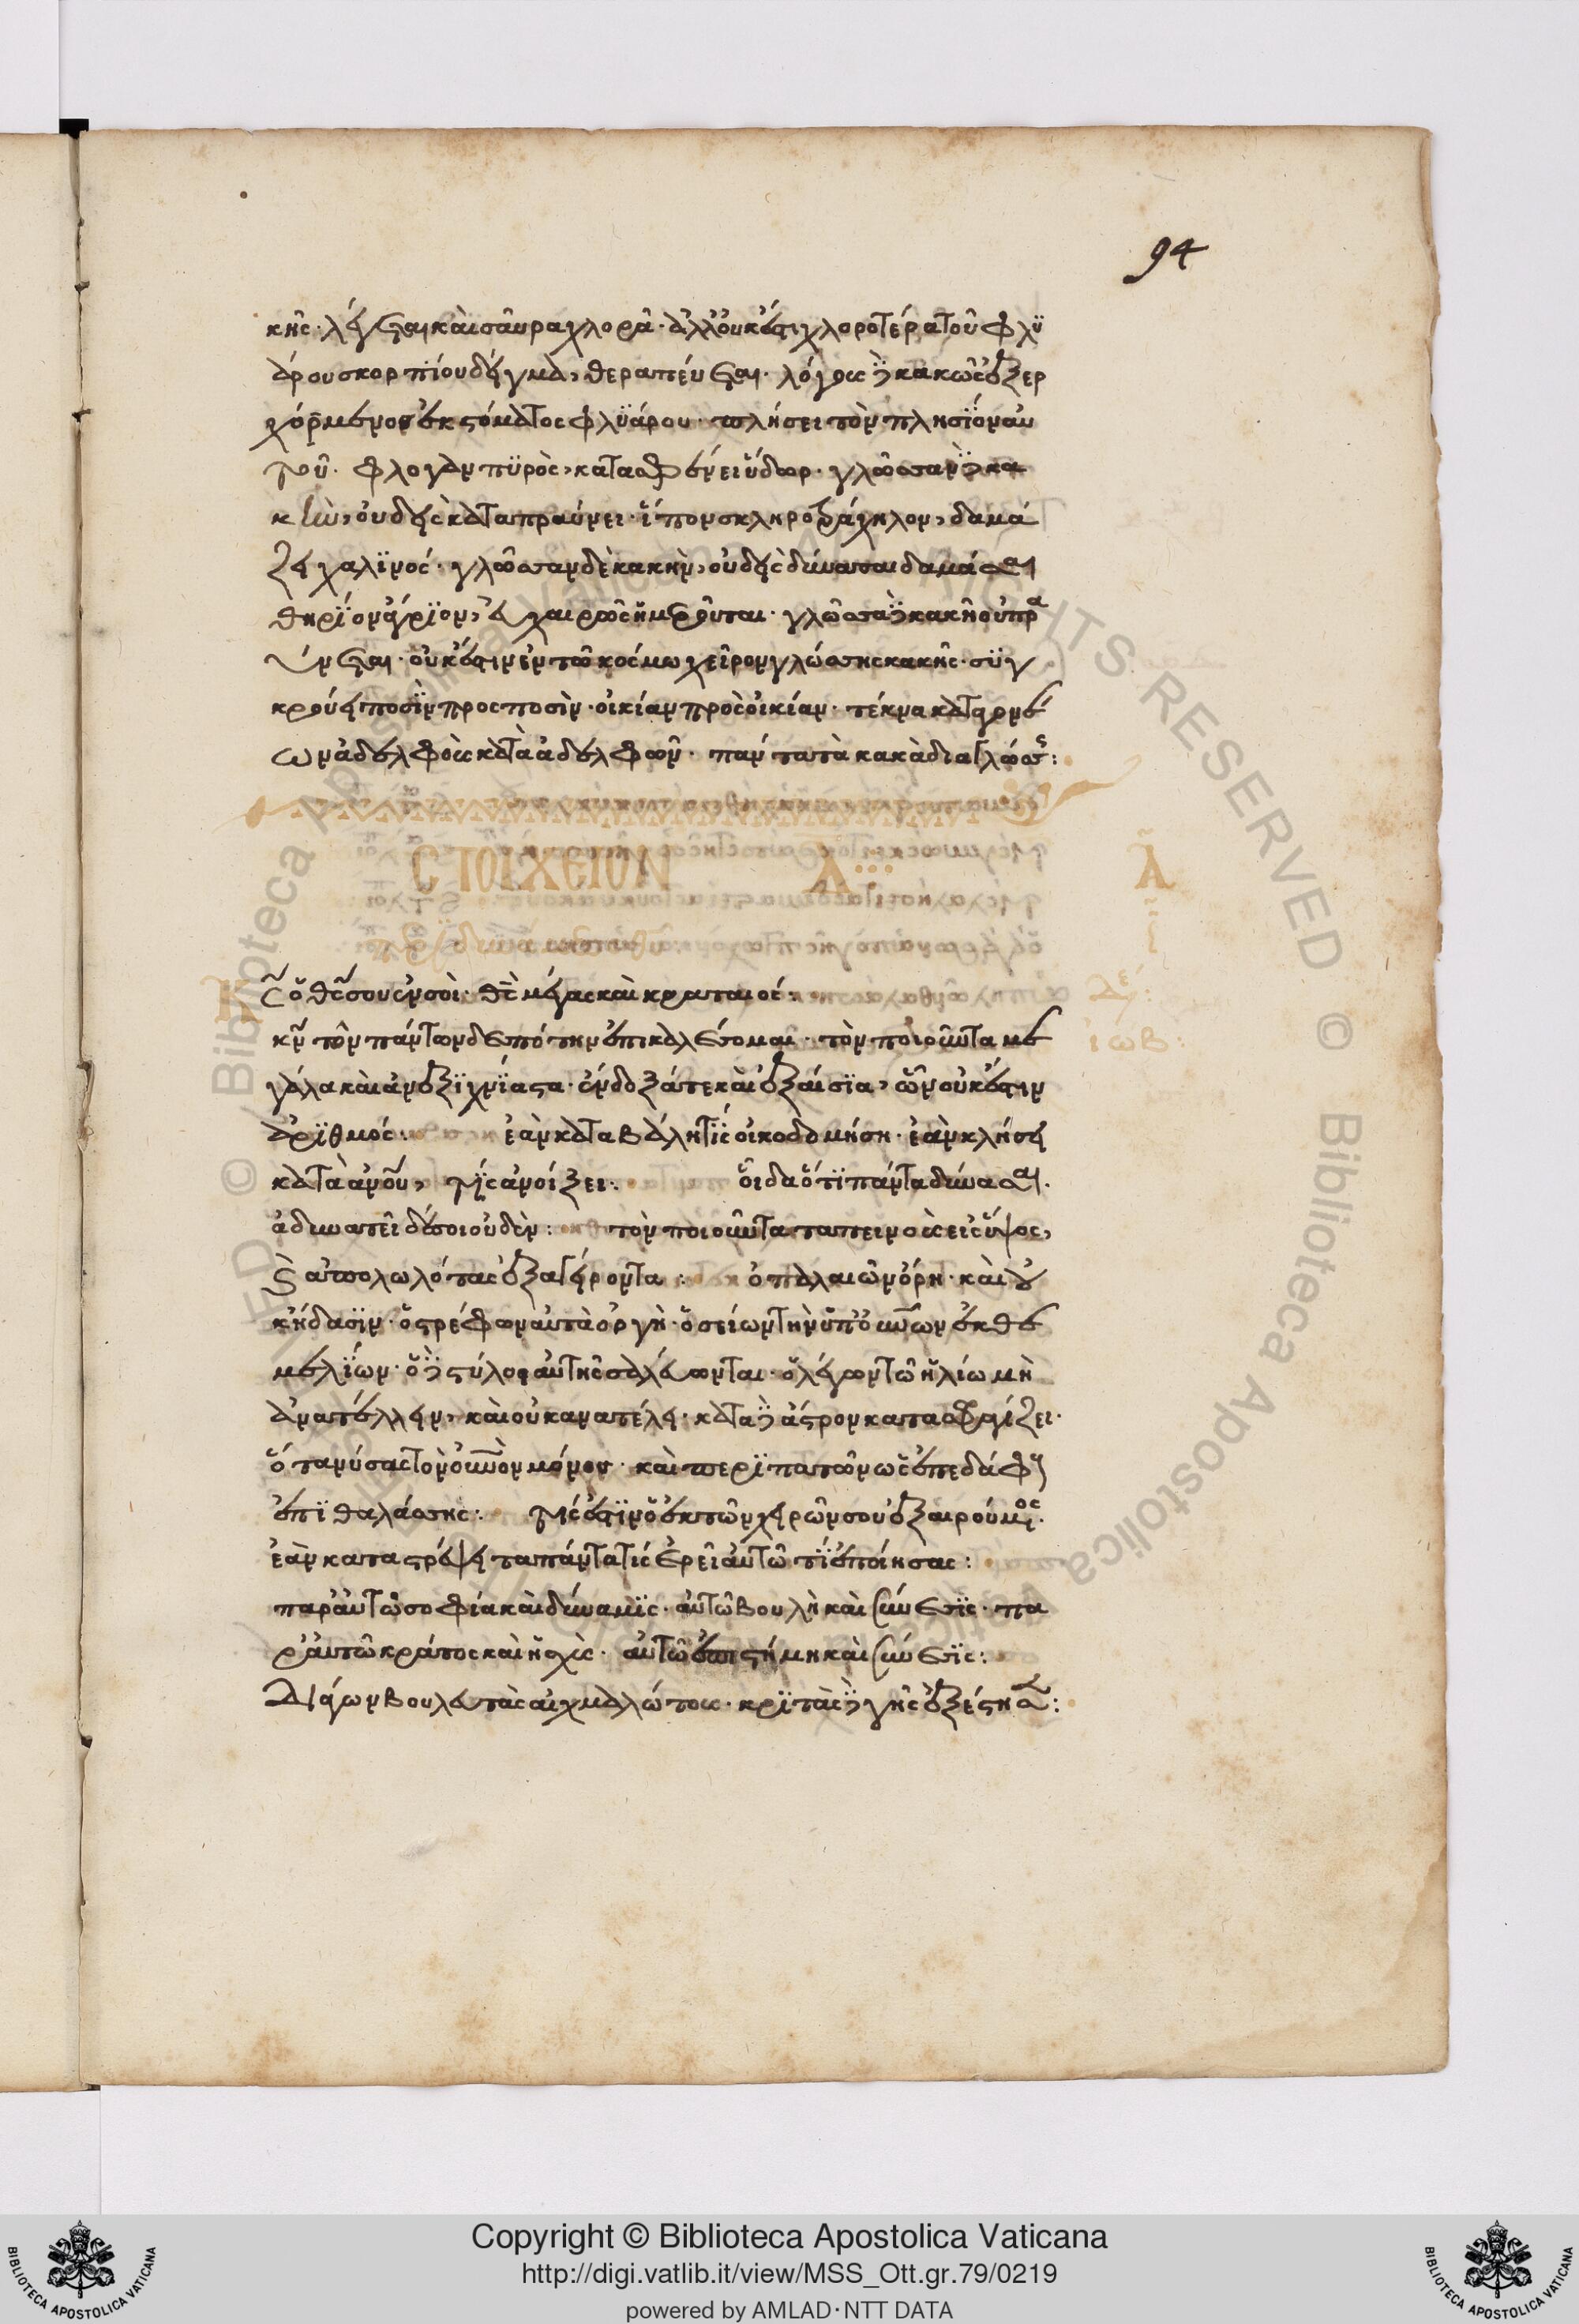 94
κῆς· λέγεται καὶ σαύρα χλορὰ· ἀλλ οὐκ ἔστι χλοροτέρα τοῦ φλϋ
άρου σκορπίου δῆγμα, θεραπεύεται· λόγους δὲ κακῶς ἐξερ
χόμενον ἐκ στόματος φλϋάρου· πλήσει τὸν πλησΐον αυ
τοῦ. φλογαν πϋρὸς, κατασβένει ὕδωρ· γλῶσσαν δὲ κα
κὴν, οὐδεὶς καταπραΰνει· ἵππον σκληροτράχηλον, δαμά
ζει χαλϊνός· γλῶσσαν δὲ κακην, οὐδεὶς δύναται δαμάσαι
θηρΐον ἄγρϊον, εὐχαιρῶς ἡμεροῦται· γλῶσσα δὲ κακῆ οὐ πρα
ΰνεται· οὐκ ἔστιν ἐν τῶ κοσμω χεῖρον γλώσσης κακῆς· σϋγ
κρούει ποσῒν προς ποσὶν· οἰκίαν πρὸς οἰκίαν· τέκνα κατα γονέ
ων ἀδελφοὺς κατὰ ἀδελφῶν· πάντα τὰ κακὰ δια γλώσσης:
CΤΟΙΧΕΙΟΝ Λ
κς ὁ θς σου ἐν σοὶ· θς μέγας καὶ κραταιος·
κν τὸν πάντων δεσπότην ἐπικαλέσομαι· τὸν ποιοῦντα με
γάλα καὶ ἀνεξϊχνΐαστα· ἐνδοξά τε καὶ ἐξαίσϊα, ὧν οὐκ ἔστιν
ἀρϊθμός: ἐὰν καταβάλη τΐς οἰκοδομήση· ἐὰν κλήσει
κατὰ ἀνου, τΐς ἀνοίξει: οἶδα ὅτϊ πάντα δύνασαι.
ἀδυνατεῖ δέ σοι οὐδὲν: τὸν ποιοῦντα ταπεινοὺς εις ὕψος,
καὶ ἀπολωλότας ἐξαγείροντα: ὁ παλαιῶν ὄρη· καὶ οὐ
κ ἤδασϊν· ὁ στρέφων αὐτὰ ὀργῆ· ὁ σείων τὴν ὑπ οὐνων ἐκ θε
μελΐων· οἱ δὲ στύλοι αὐτῆς σαλεύονται· ὁ λέγων τῶ ἡλίω μὴ
ἀνατέλλειν, καὶ οὐκ ανατέλει· κατὰ δὲ ἄστρον κατασφραγίζει·
ὁ τανύσας τὸν οὐνὸν μόνος· καὶ περϊπατῶν ὡς ἐπ εδάφους
ἐπὶ θαλάσσης: τίς ἐστϊν ὁ ἐκ τῶν χειρῶν σου ἐξαιρούμενος.
ἐὰν καταστρέψει τα πάντα τίς ἐρεῖ αὐτῶ τΐ ἐποίησας:
παρ αὐτῶ σοφία καὶ δύναμϊς· αὐτῶ βουλὴ καὶ σύνεσϊς· πα
ρ αὐτῶ κράτος καὶ ἡσχὺς· αὐτῶ ἐπιστήμη καὶ σύνεσϊς:
Διάγων βουλευτὰς αἰχμαλώτους· κρϊτὰς δὲ γῆς ἐξέστησε:
Λ
ι
ἰωβ:
Copyright © Biblioteca Apostolica Vaticana
http://digi.vatlib.it/view/MSS_Ott.gr.79/0219
powered by AMLAD·NTT DATA